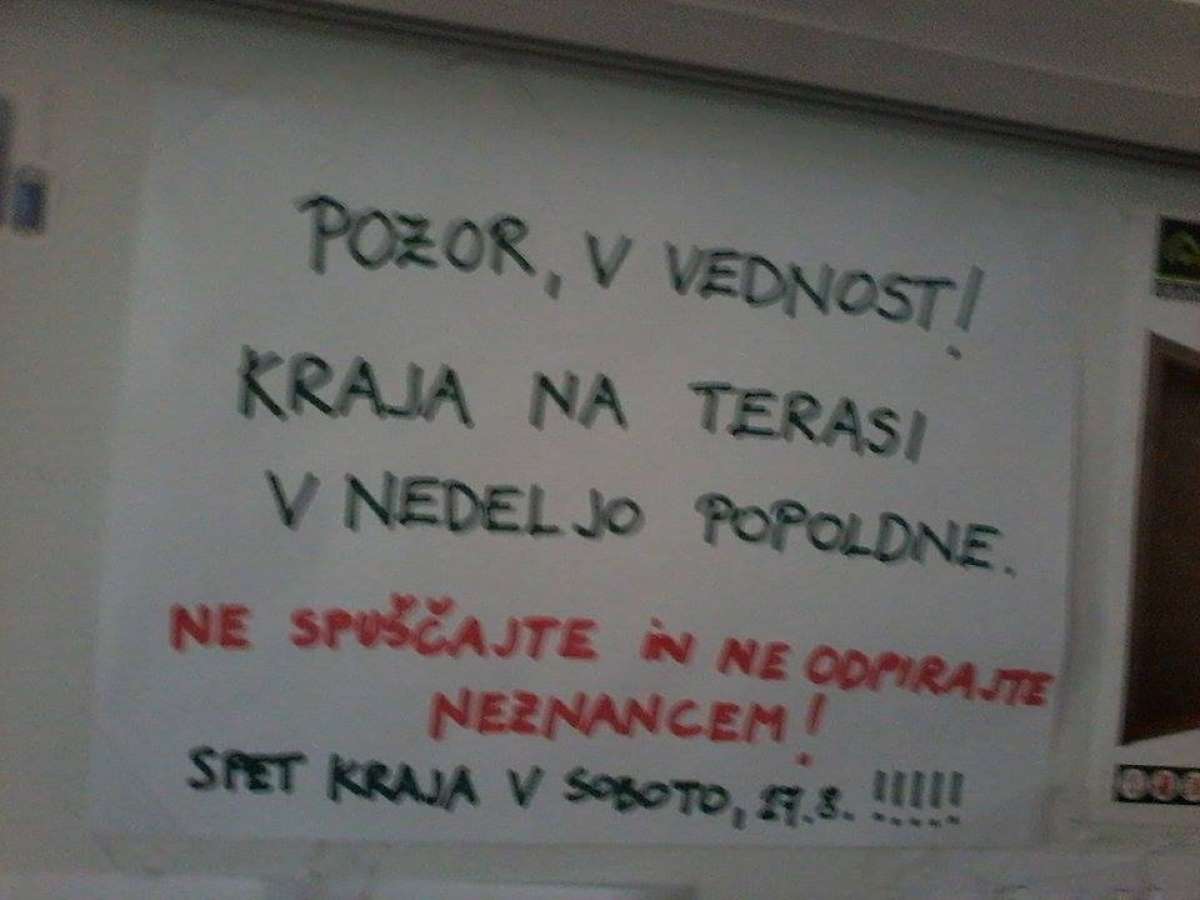 POZOR, V VEDNOST!
KRAJA NA TERASI
V NEDELJO POPOLDNE.
NE SPUŠČAJTE IN NE ODPIRAJTE
NEZNANCEM!
SPET KRAJA V SOBOTO, 27.8. !!!!!